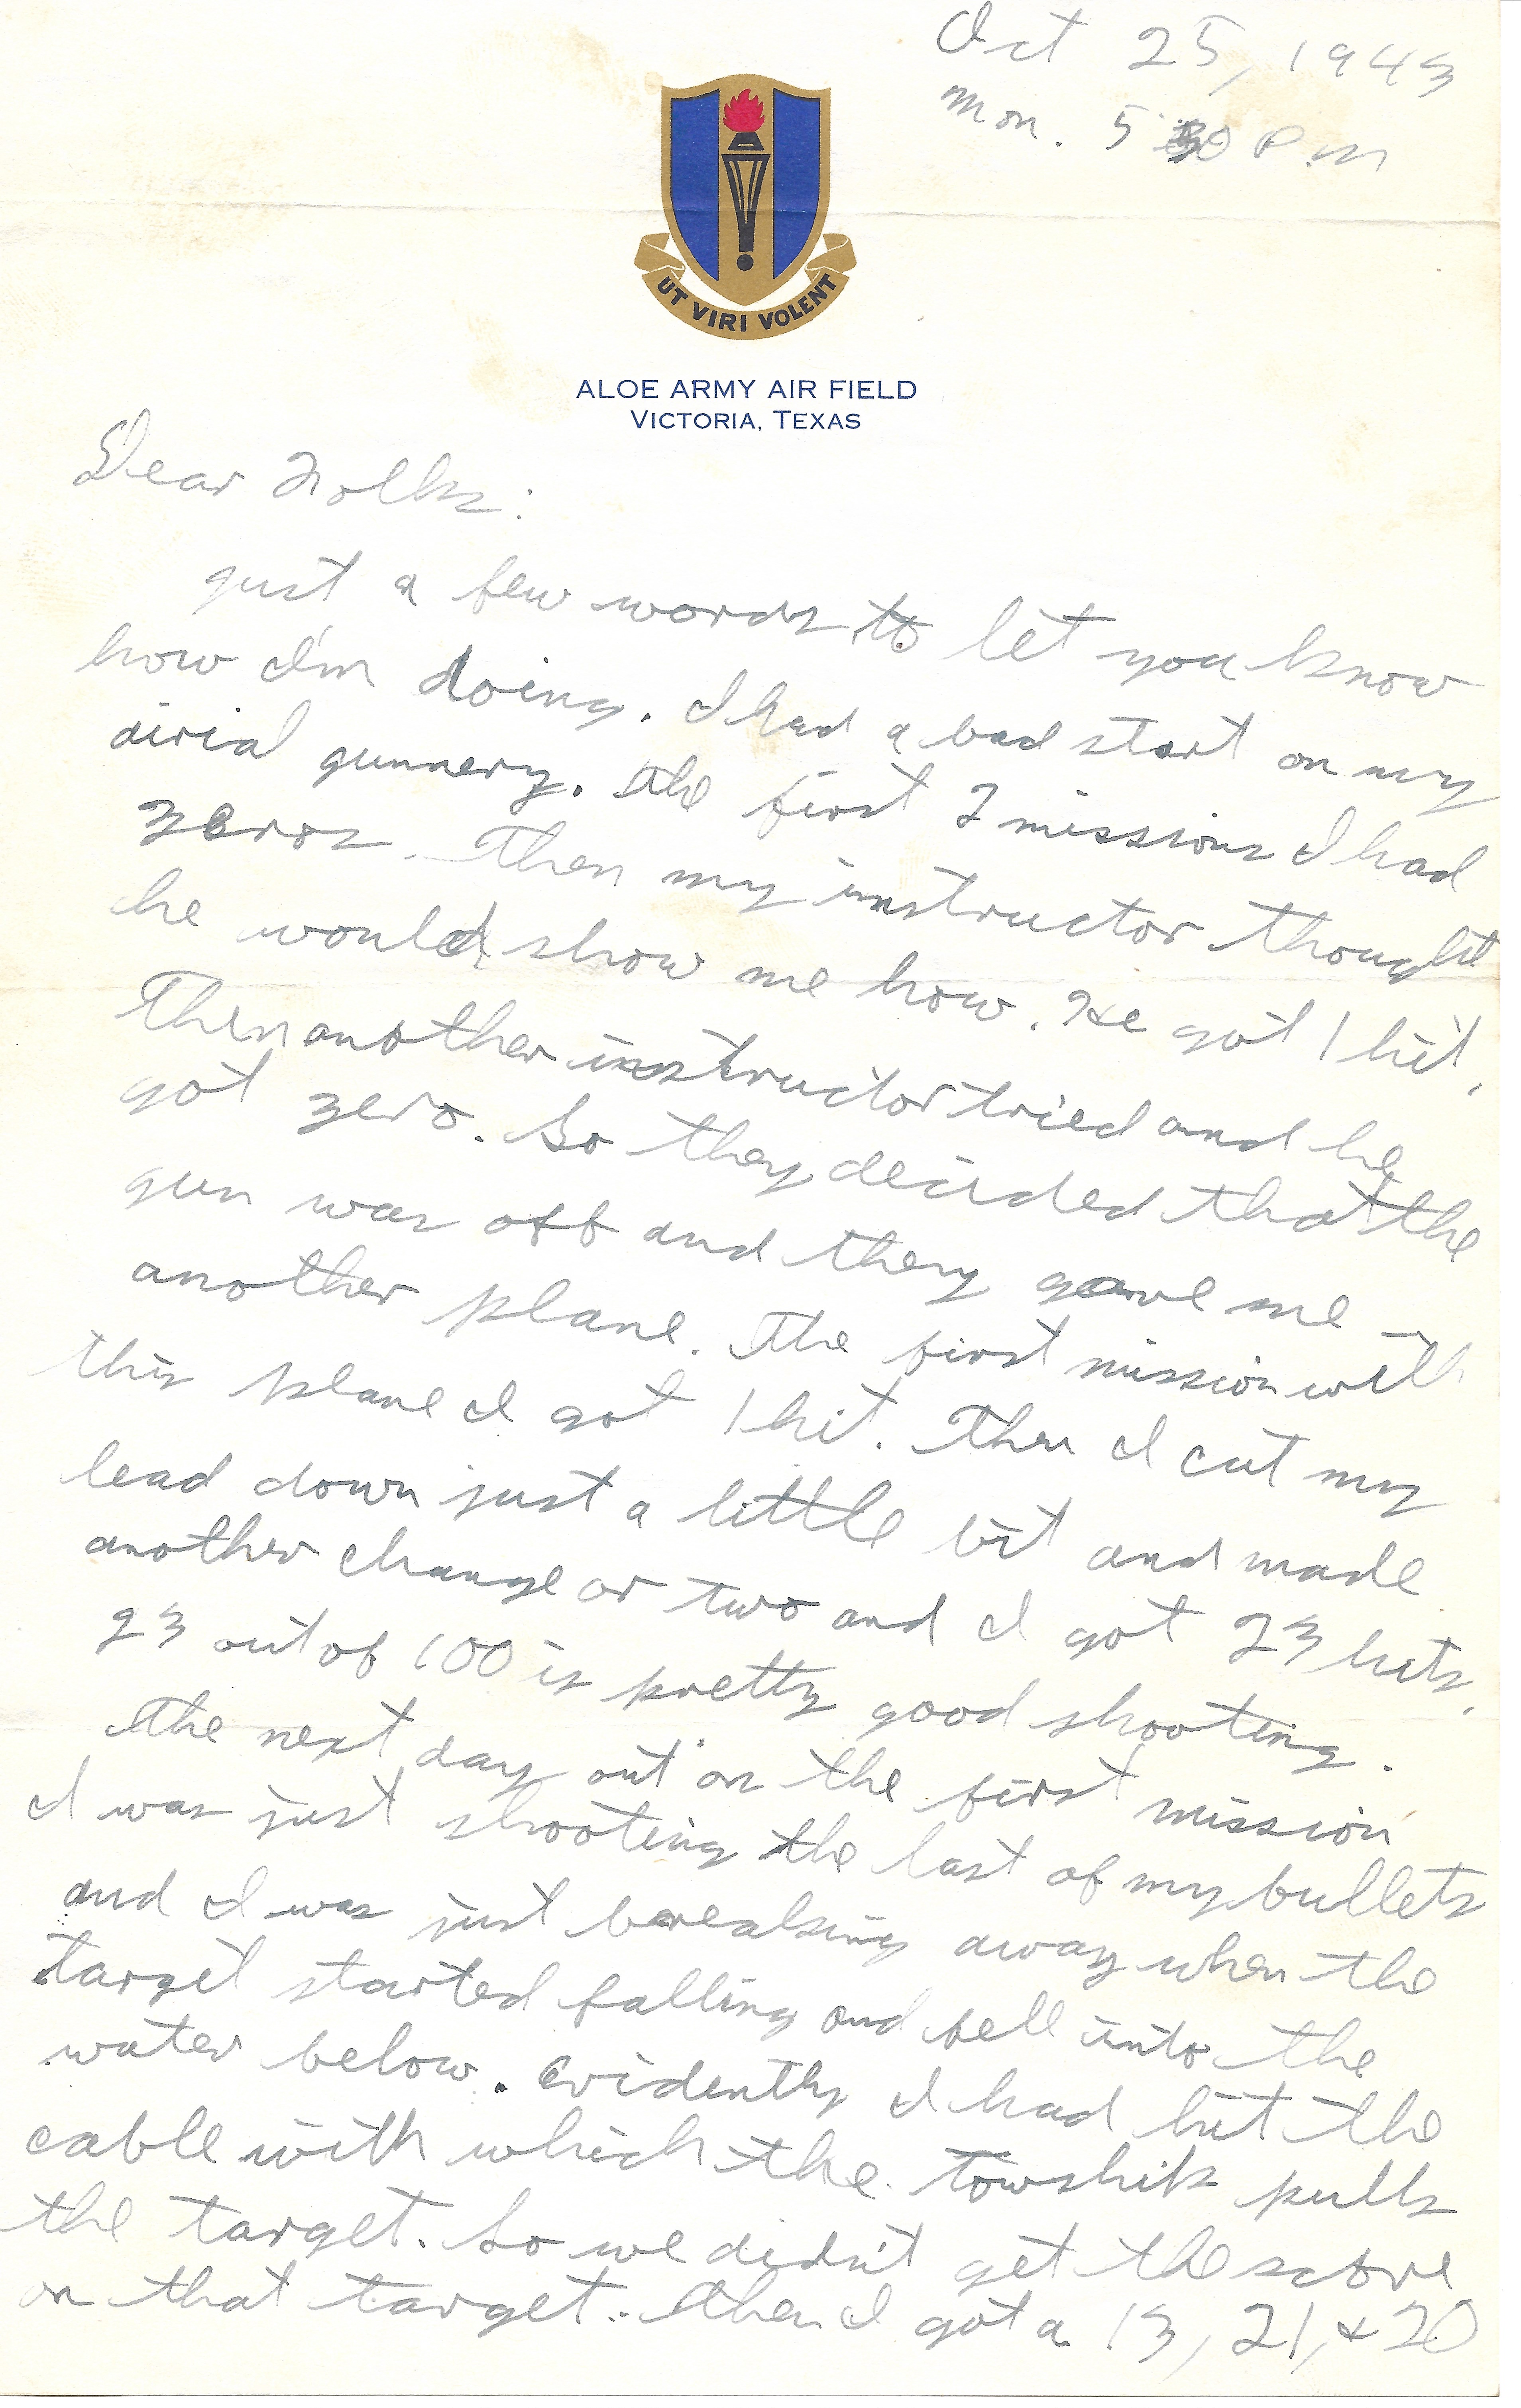 Oct 25, 1943
Mon. 5:30 P.M
UT VIRI VOLENT
ALOE ARMY AIR FIELD
VICTORIA, TEXAS
Dear Folks:
Just a few words to let you know
how I'm doing. I had a bad start on my
airial gunnery. The first 2 missions I had
zeros. Then my instructor thought
he would show me how. He got 1 hit.
Then another instructor tried and he
got zero. So they decided that the
gun was off and they gave me
another plane. The first mission with
this plane I got 1 hit. Then I cut my
lead down just a little bit and made
another change or two and I got 23 hits.
23 out of 100 is pretty good shooting.
The next day out on the first mission
I was just shooting the last of my bullets
and I was just breaking away when the
target started falling and fell into the
water below. Evidently I had hit the
cable with which the towship pulls
the target. So we didn't get the score
on that target. Then I got a 13, 21, & 20